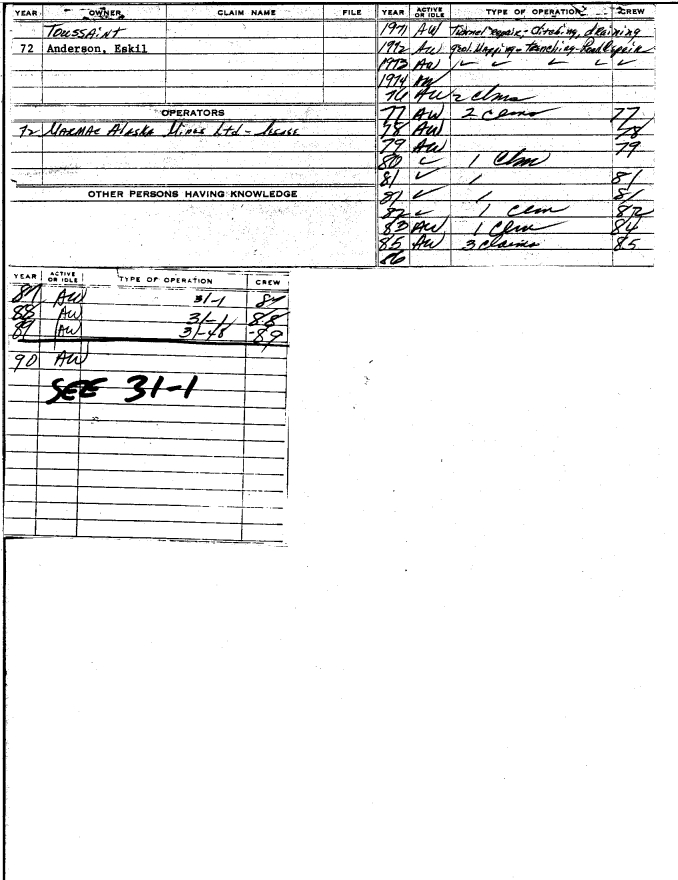 YEAR OWNER CLAIM NAME FILE
TOUSSAINT
72 Anderson, Eskil
OPERATORS
72 MARMAC Alaska Mines Ltd - lease
OTHER PERSONS HAVING KNOWLEDGE
YEAR ACTIVE OR IDLE TYPE OF OPERATION CREW
1971 AW Tunnel repair - ditching, draining
1972 AW geol. Mapping - trenching - Road Repair
1973 AW ✓ ✓ ✓ ✓ ✓
1974 AW
76 AW 2 clms
77 AW 2 clms 77
78 AW 78
79 AW 79
80 ✓ 1 clm
81 ✓ 1 81
81 ✓ 1 81
82 ✓ 1 clm 82
83 AW 1 clm 84
85 AW 3 claims 85
86
YEAR ACTIVE OR IDLE TYPE OF OPERATION CREW
87 AW 31-1 87
88 AW 31-1 88
89 AW 31-48 -89
90 AW
SEE 31-1